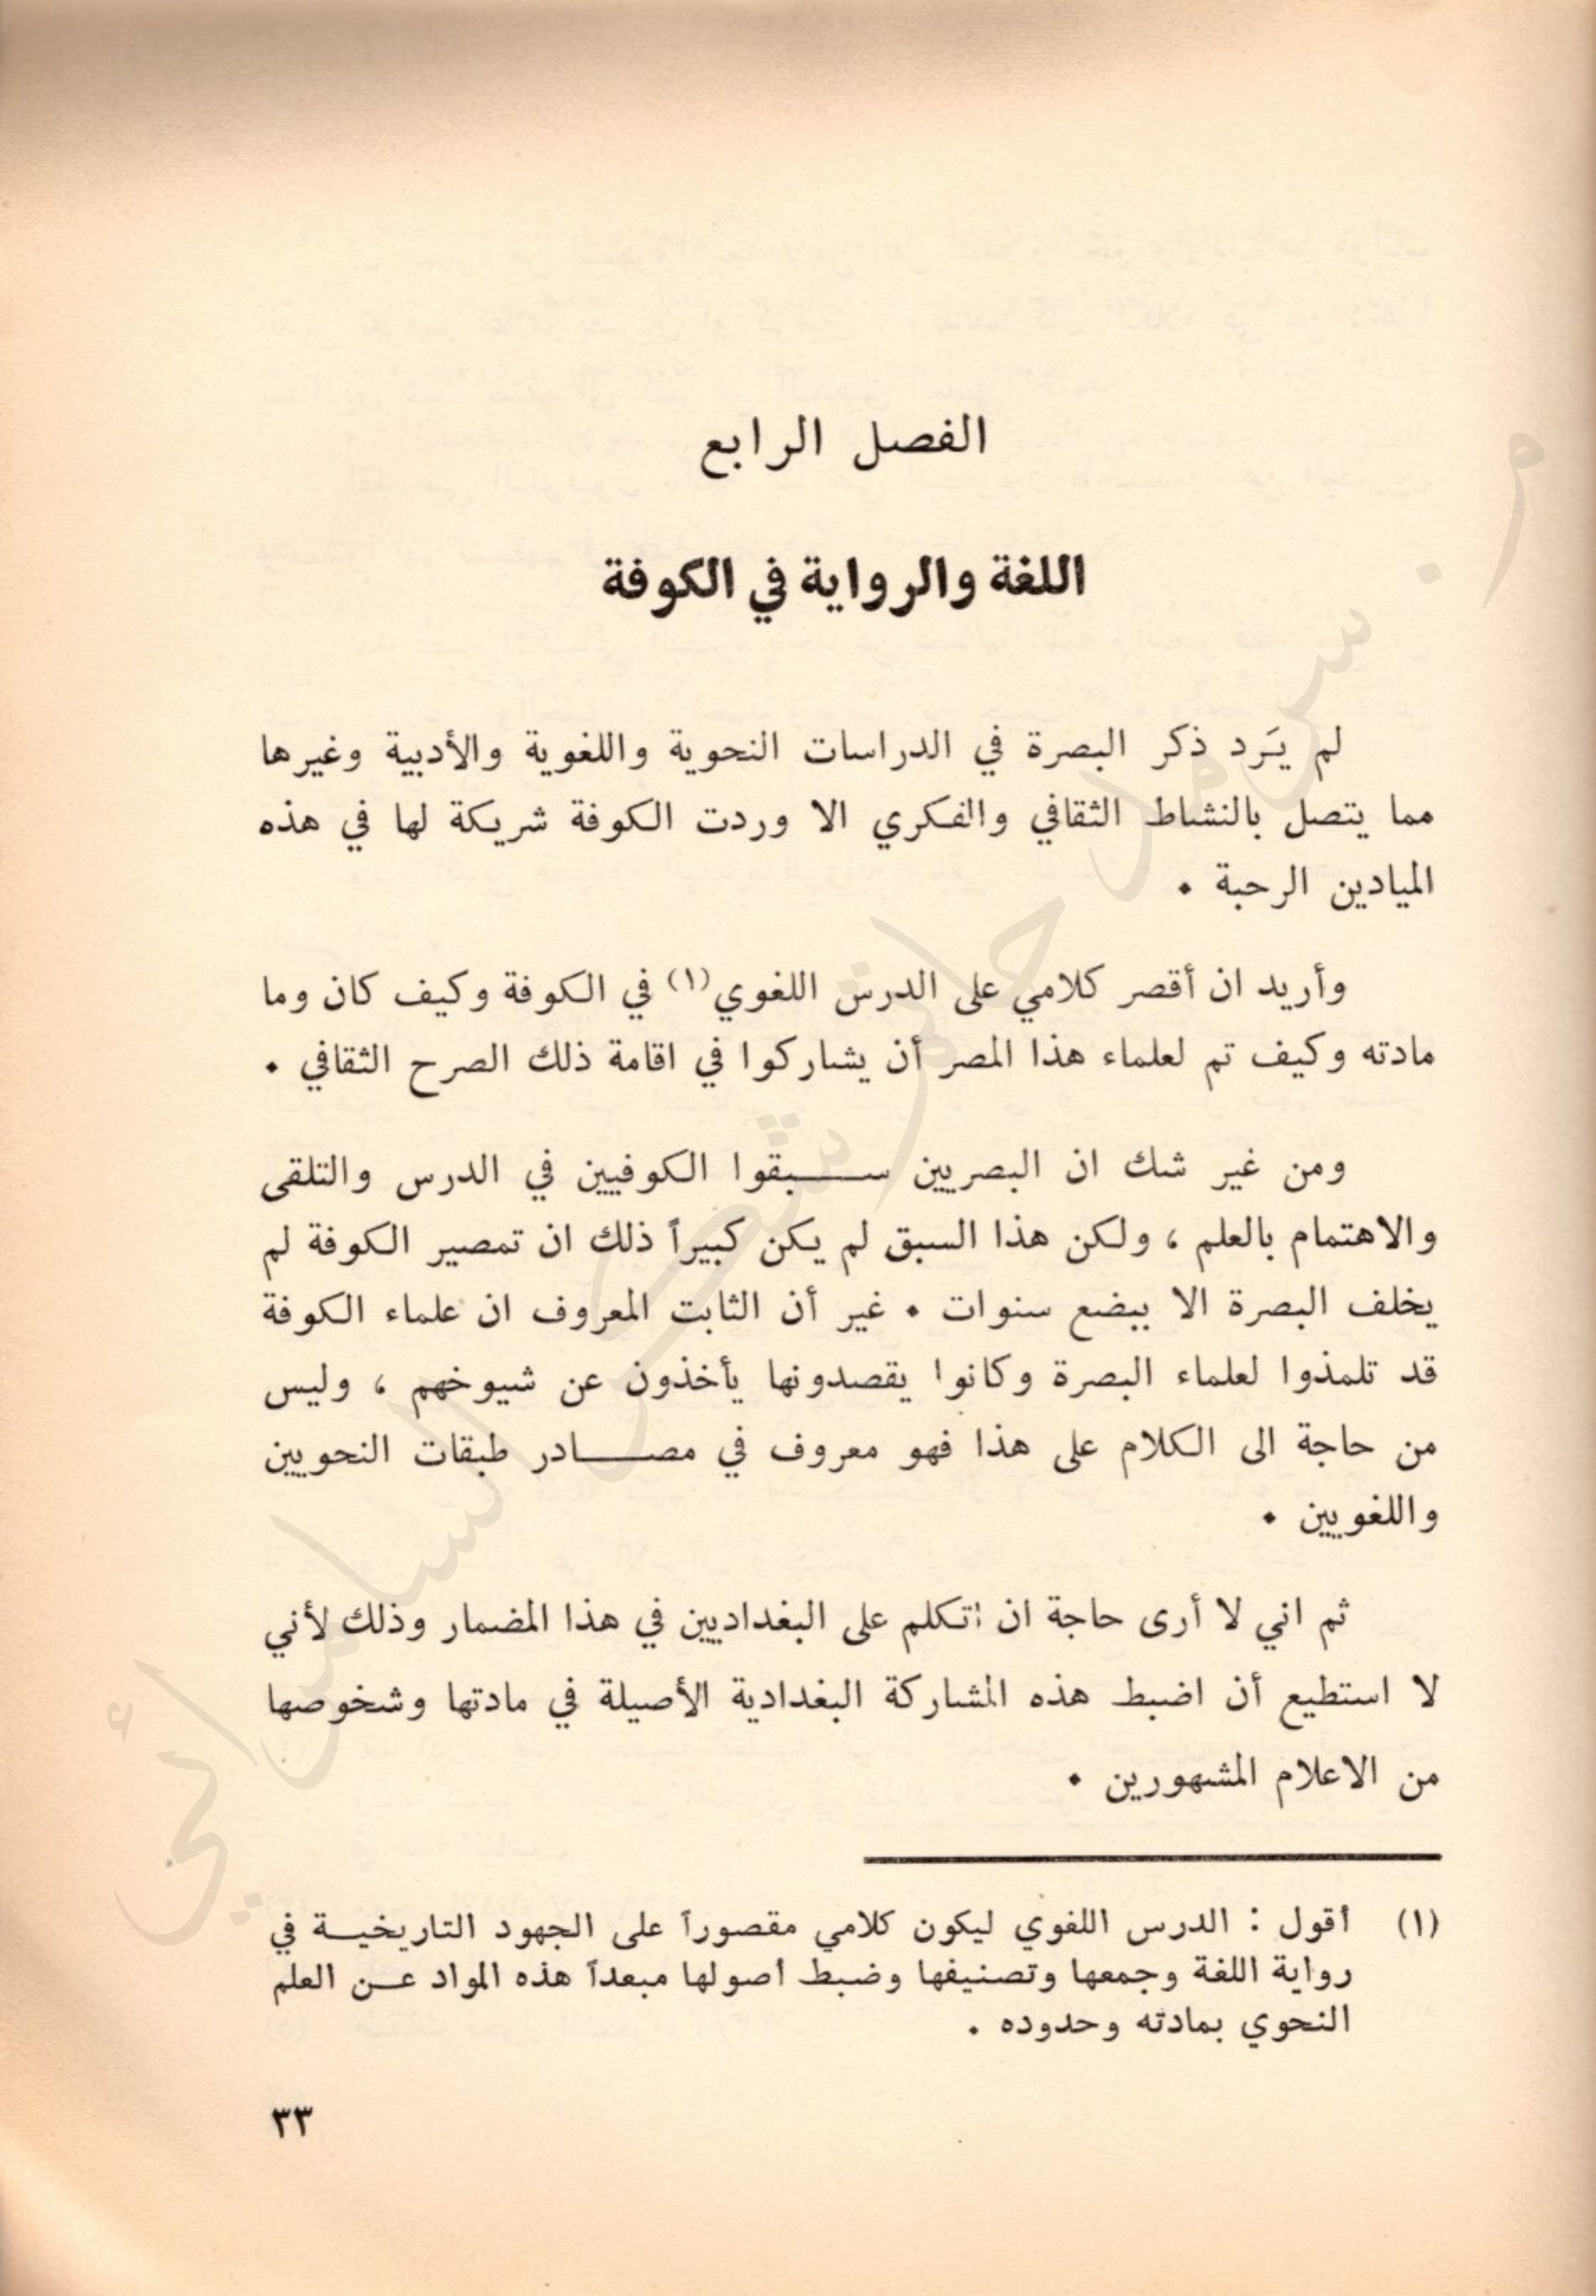 الفصل الرابع
اللغة والرواية في الكوفة
لم يَرد ذكر البصرة في الدراسات النحوية واللغوية والأدبية وغيرها
مما يتصل بالنشاط الثقافي والفكري الا وردت الكوفة شريكة لها في هذه
الميادين الرحبة ٠
وأريد ان أقصر كلامي على الدرس اللغوي(١) في الكوفة وكيف كان وما
مادته وكيف تم لعلماء هذا المصر أن يشاركوا في اقامة ذلك الصرح الثقافي ٠
ومن غير شك ان البصريين ســـبقوا الكوفيين في الدرس والتلقى
والاهتمام بالعلم ، ولكن هذا السبق لم يكن كبيراً ذلك ان تمصير الكوفة لم
يخلف البصرة الا ببضع سنوات ٠ غير أن الثابت المعروف ان علماء الكوفة
قد تلمذوا لعلماء البصرة وكانوا يقصدونها يأخذون عن شيوخهم ، وليس
من حاجة الى الكلام على هذا فهو معروف في مصـــادر طبقات النحويين
واللغويين ٠
ثم اني لا أرى حاجة ان أتكلم على البغداديين في هذا المضمار وذلك لأني
لا استطيع أن اضبط هذه المشاركة البغدادية الأصيلة في مادتها وشخوصها
من الاعلام المشهورين ٠
(١) أقول : الدرس اللغوي ليكون كلامي مقصوراً على الجهود التاريخيــة في
رواية اللغة وجمعها وتصنيفها وضبط أصولها مبعداً هذه المواد عــن العلم
النحوي بمادته وحدوده .
٣٣